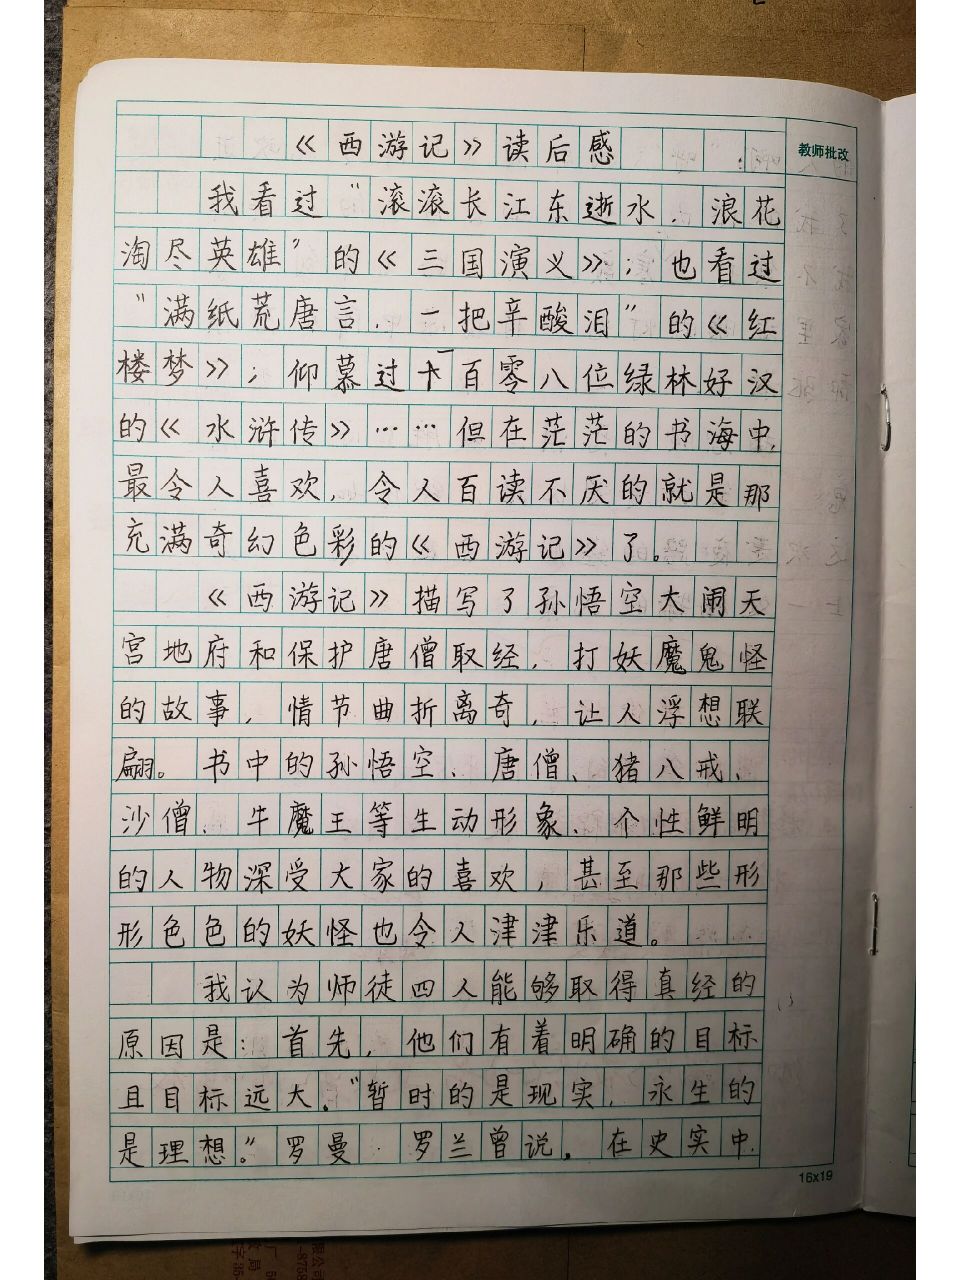 《西游记》读后感
教师批改
我看过“滚滚长江东逝水，浪花
淘尽英雄”的《三国演义》；也看过
“满纸荒唐言，一把辛酸泪”的《红
楼梦》；仰慕过一百零八位绿林好汉
的《水浒传》……但在茫茫的书海中，
最令人喜欢，令人百读不厌的就是那
充满奇幻色彩的《西游记》了。
《西游记》描写了孙悟空大闹天
宫地府和保护唐僧取经，打妖魔鬼怪
的故事，情节曲折离奇，让人浮想联
翩。书中的孙悟空、唐僧、猪八戒、
沙僧、牛魔王等生动形象、个性鲜明
的人物深受大家的喜欢，甚至那些形
形色色的妖怪也令人津津乐道。
我认为师徒四人能够取得真经的
原因是：首先，他们有着明确的目标
且目标远大。“暂时的是现实，永生的
是理想。”罗曼·罗兰曾说。在史实中，
16x19